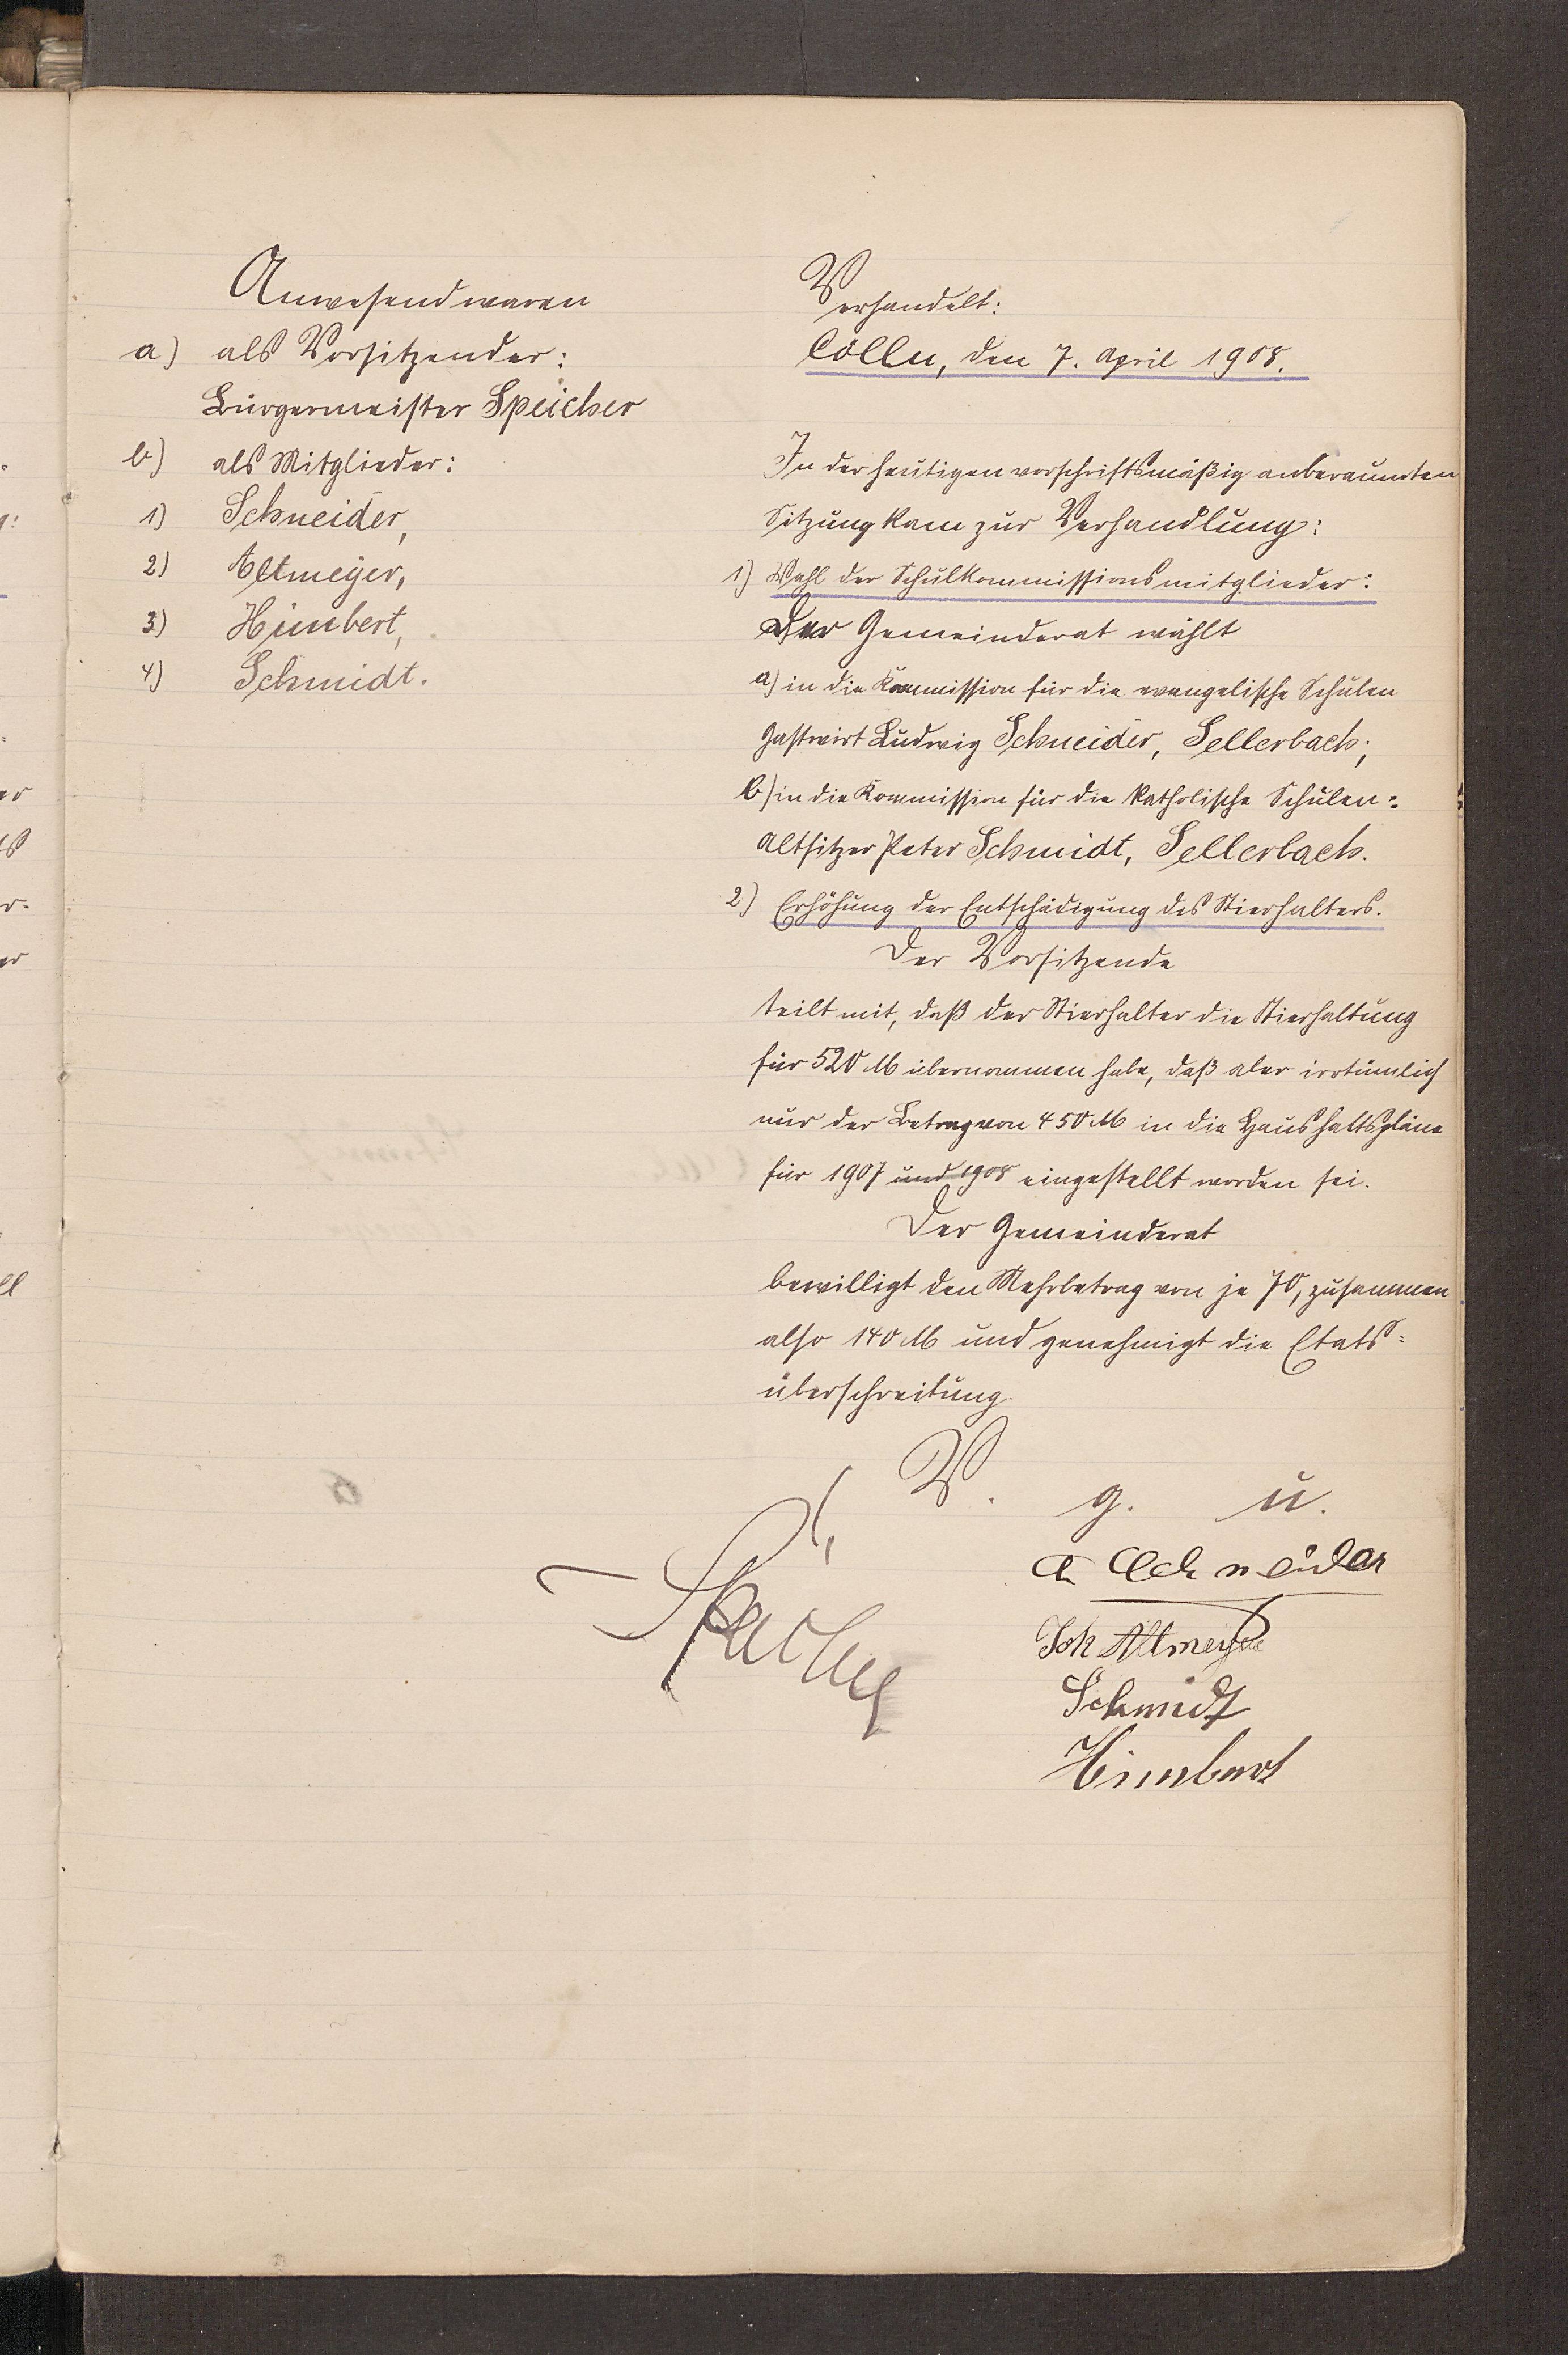 Anwesend waren
a) als Vorsitzender:
Bürgermeister Speicher
b) als Mitglieder:
1) Schneider,
2) Altmeyer,
3) Himbert,
4) Schmidt.
Verhandelt:
Cölln, den 7. April 1908.
In der heutigen vorschriftsmäßig anberaumten
Sitzung kam zur Verhandlung:
1) Wahl der Schulkommissionsmitglieder:
Der Gemeinderat wählt
a) in die Kommission für die evangelische Schulen
Gastwirt Ludwig Schneider, Sellerbach;
b) in die Kommission für die katholische Schulen:
Altsitzer Peter Schmidt, Sellerbach.
2) Erhöhung der Entschädigung des Stierhalters.
Der Vorsitzende
teilt mit, daß der Stierhalter die Stierhaltung
für 520 M übernommen habe, daß aber irrtümlich
nur der Betrag von 450 M in die Haushaltspläne
für 1907 und 1908 eingestellt worden sei.
Der Gemeinderat
bewilligt den Mehrbetrag von je 70, zusammen
also 140 M und genehmigt die Etats=
überschreitung.
V. g. u.
Speicher
Schneider
Joh Altmeyer
Schmidt
Himbert